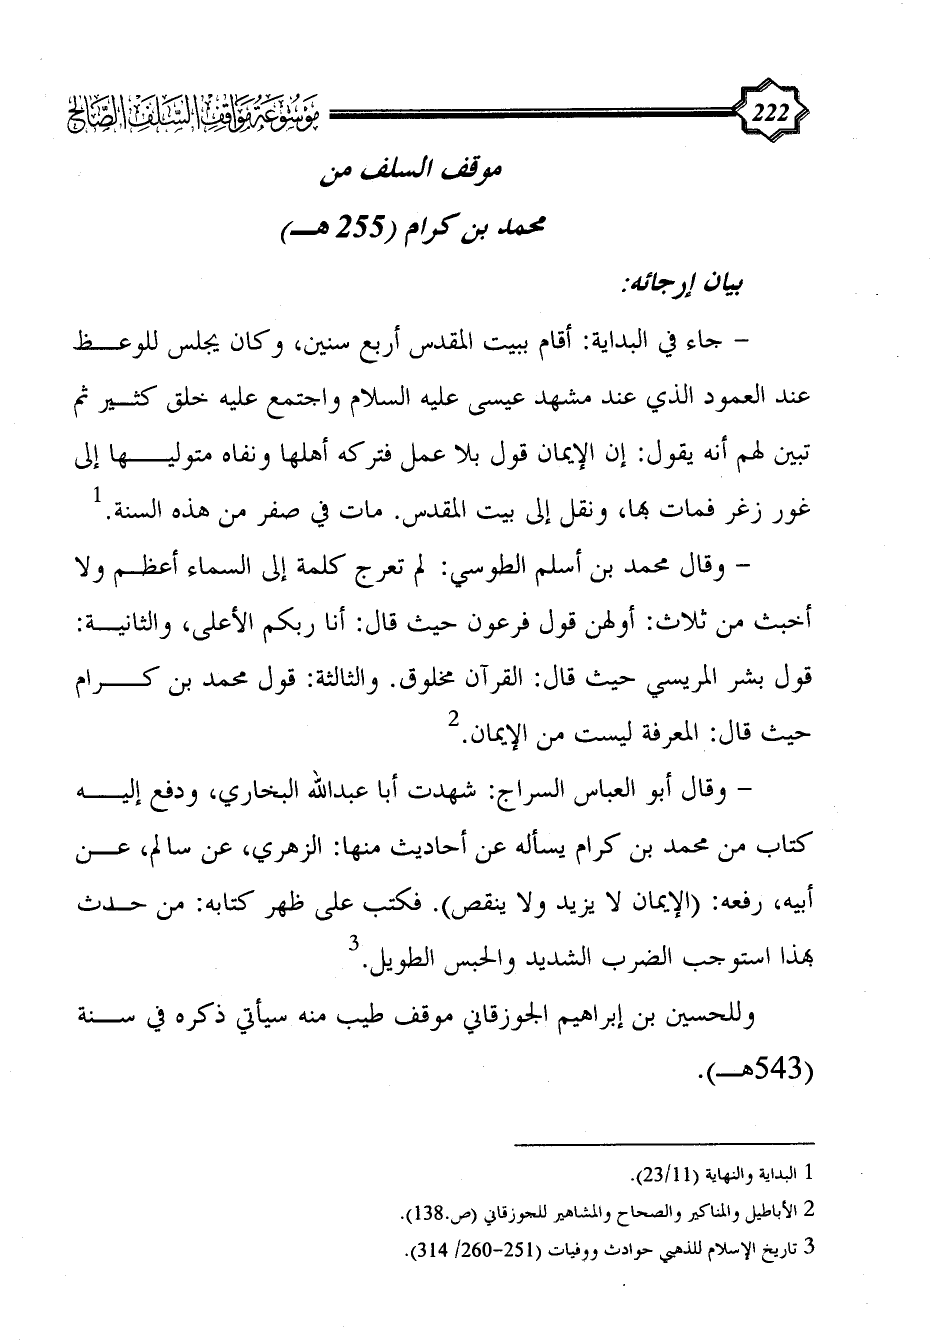 222
موسوعة مواقف السلف الصالح
موقف السلف من
محمد بن كرام (255 هـ)
بيان إرجائه:
– جاء في البداية: أقام ببيت المقدس أربع سنين، وكان يجلس للوعظ
عند العمود الذي عند مشهد عيسى عليه السلام واجتمع عليه خلق كثير ثم
تبين لهم أنه يقول: إن الإيمان قول بلا عمل فتركه أهلها ونفاه متوليها إلى
غور زغر فمات بها، ونقل إلى بيت المقدس. مات في صفر من هذه السنة.1
– وقال محمد بن أسلم الطوسي: لم تعرج كلمة إلى السماء أعظم ولا
أخبث من ثلاث: أولهن قول فرعون حيث قال: أنا ربكم الأعلى، والثانية:
قول بشر المريسي حيث قال: القرآن مخلوق. والثالثة: قول محمد بن كرام
حيث قال: المعرفة ليست من الإيمان.2
– وقال أبو العباس السراج: شهدت أبا عبدالله البخاري، ودفع إليه
كتاب من محمد بن كرام يسأله عن أحاديث منها: الزهري، عن سالم، عن
أبيه، رفعه: (الإيمان لا يزيد ولا ينقص). فكتب على ظهر كتابه: من حدث
بهذا استوجب الضرب الشديد والحبس الطويل.3
وللحسين بن إبراهيم الجوزقاني موقف طيب منه سيأتي ذكره في سنة
(543هـ).
1 البداية والنهاية (23/11).
2 الأباطيل والمناكير والصحاح والمشاهير للجوزقاني (ص.138).
3 تاريخ الإسلام للذهبي حوادث ووفيات (251-260/ 314).